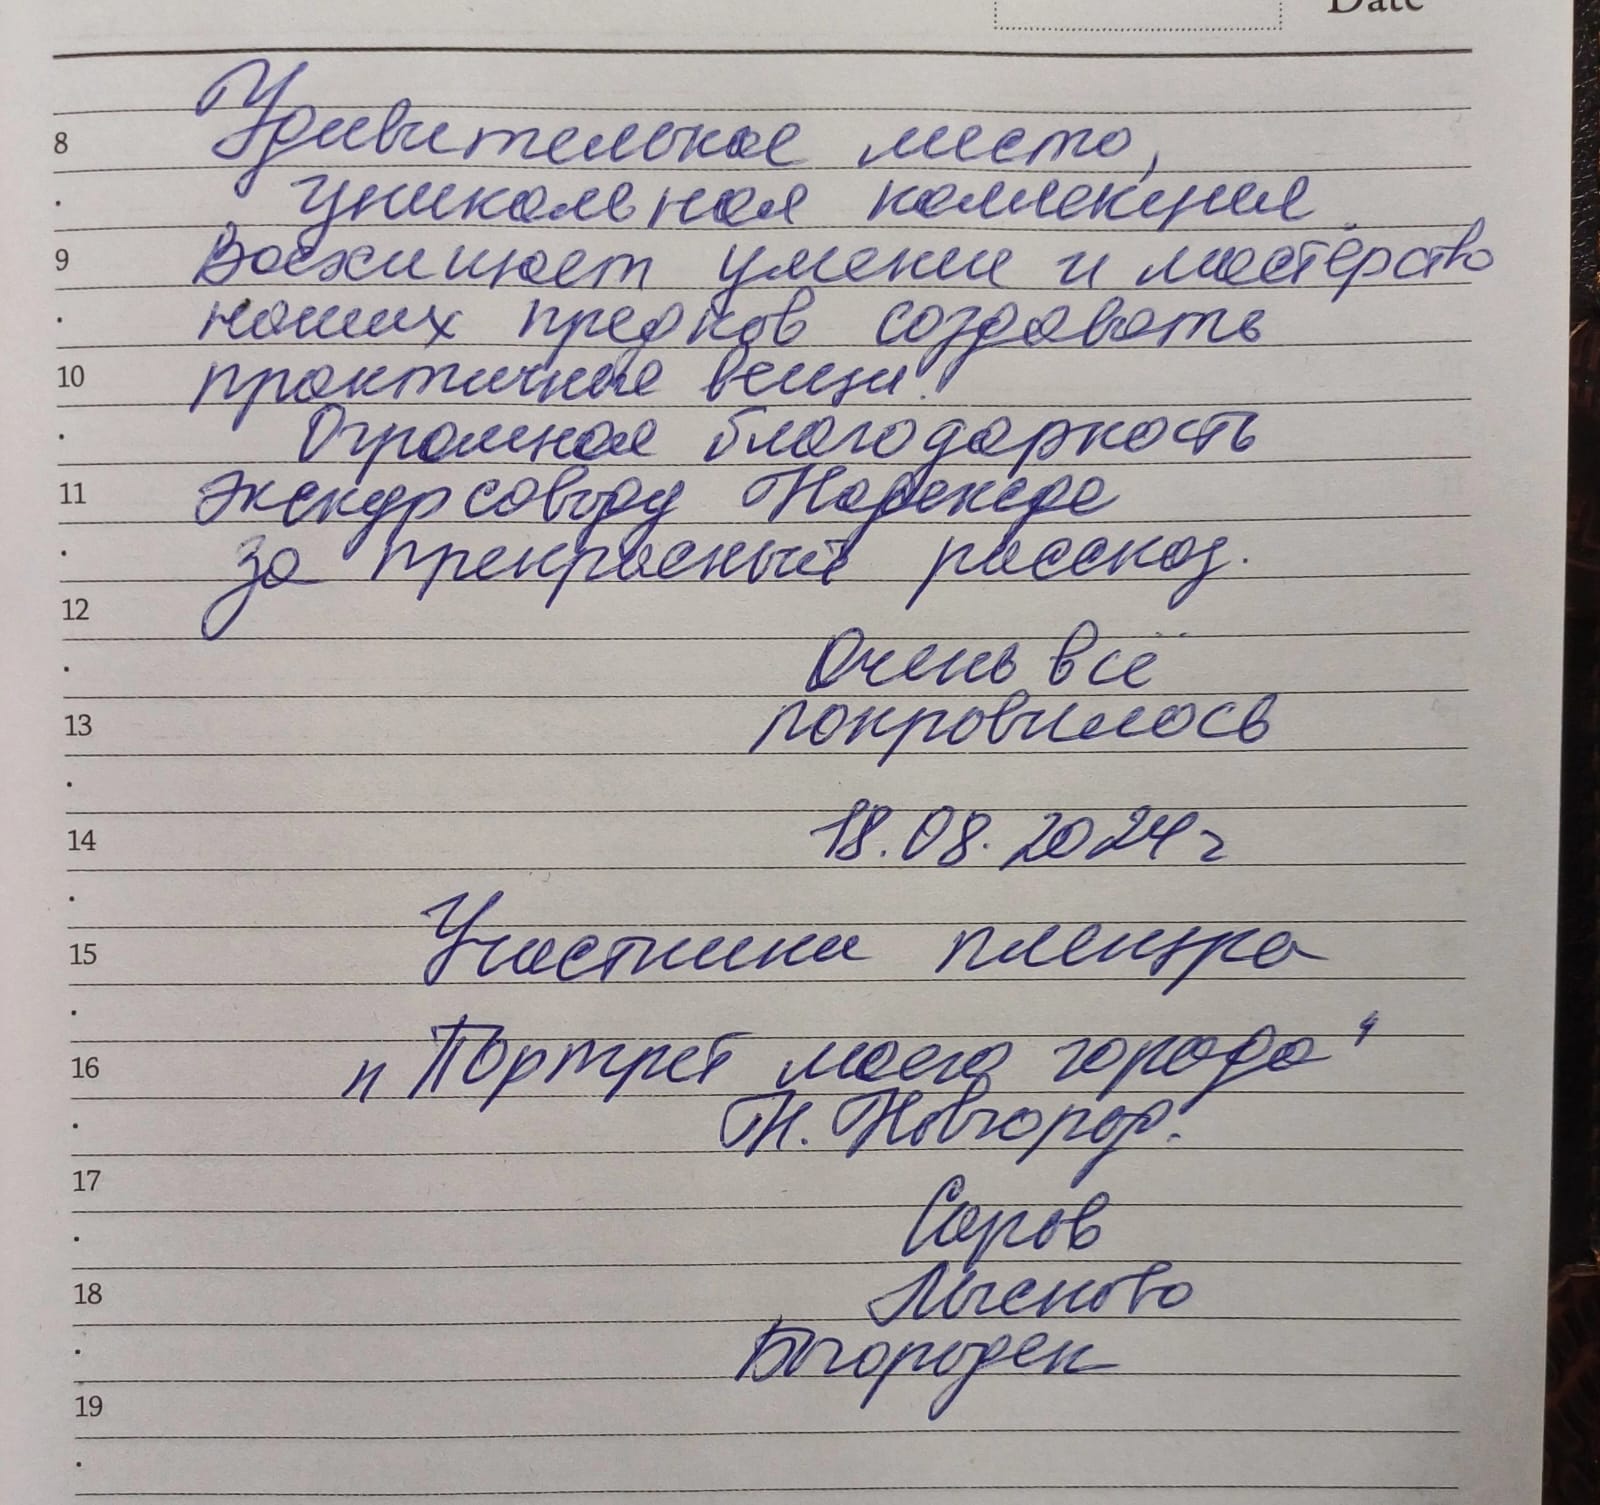 Date
8
Удивительное место,
уникальная коллекция
9
Восхищает умение и мастерство
наших предков создавать
10
практичные вещи!
Огромная благодарность
11
экскурсоводу Надежде
за прекрасный рассказ.
12
Очень всё
13
понравилось
14
18.08.2024г
15
Участники пленэра
16
"Портрет моего города"
Н. Новгород.
17
Саров
18
Лысково
Богородск
19